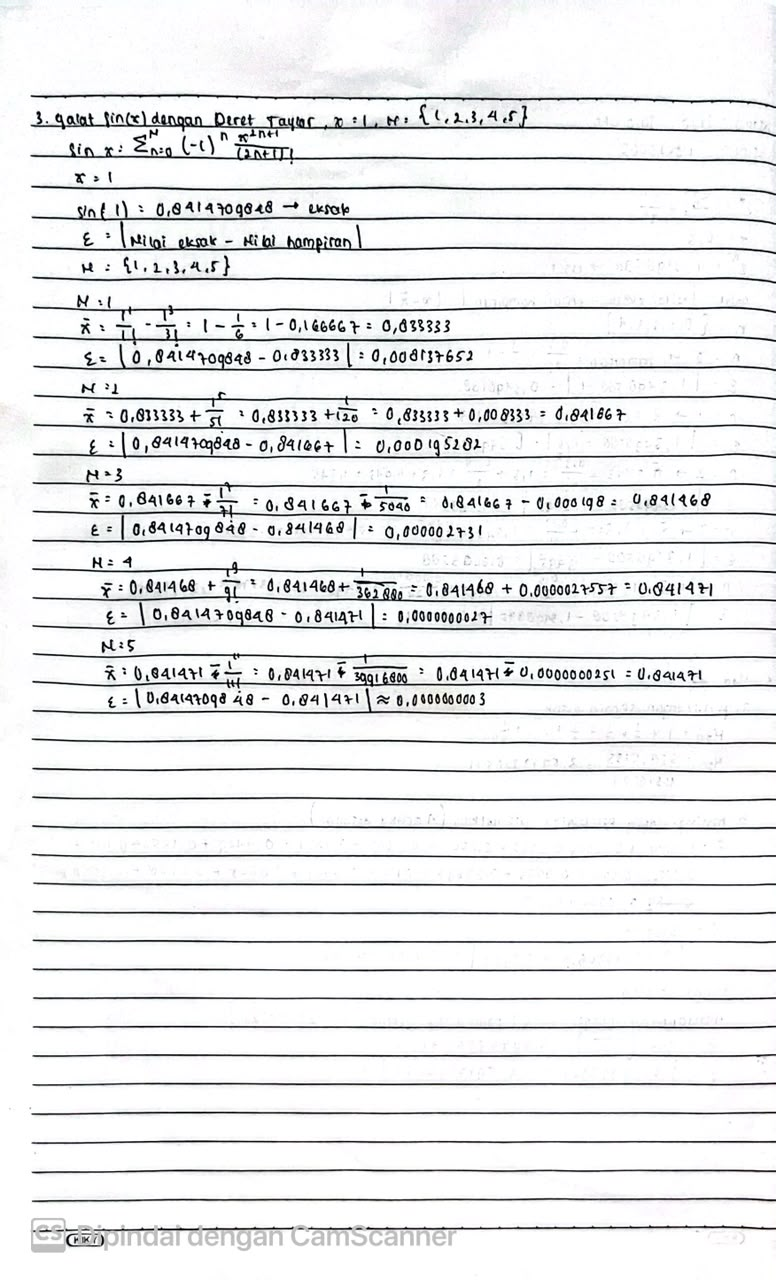 3. galat sin(x) dengan Deret Taylor, x = 1, N = {1,2,3,4,5}
sin x = Σ_{n=0}^{N} (-1)^n x^{2n+1}/(2n+1)!
x = 1
sin(1) = 0,8414709848 → eksak
ε = |Nilai eksak - Nilai hampiran|
N = {1,2,3,4,5}
N = 1
x̄ = 1^1/1! - 1^3/3! = 1 - 1/6 = 1 - 0,166667 = 0,833333
ε = |0,8414709848 - 0,833333| = 0,008137652
N = 2
x̄ = 0,833333 + 1^5/5! = 0,833333 + 1/120 = 0,833333 + 0,008333 = 0,841667
ε = |0,8414709848 - 0,841667| = 0,000195282
N = 3
x̄ = 0,841667 - 1^7/7! = 0,841667 - 1/5040 = 0,841667 - 0,000198 = 0,841468
ε = |0,8414709848 - 0,841468| = 0,000002731
N = 4
x̄ = 0,841468 + 1^9/9! = 0,841468 + 1/362880 = 0,841468 + 0,0000027557 = 0,841471
ε = |0,8414709848 - 0,841471| = 0,0000000027
N = 5
x̄ = 0,841471 - 1^11/11! = 0,841471 - 1/39916800 = 0,841471 - 0,0000000251 = 0,841471
ε = |0,8414709848 - 0,841471| ≈ 0,000000003
CS Dipindai dengan CamScanner
KIKY